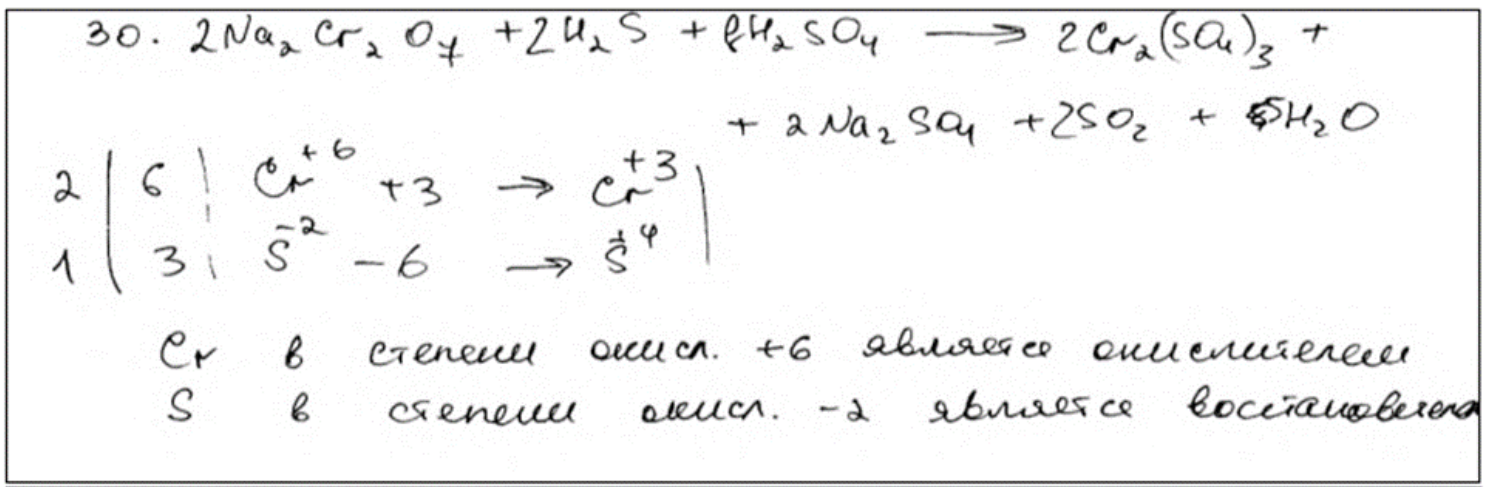 30. 2Na₂Cr₂O₇ + 2H₂S + 8H₂SO₄ → 2Cr₂(SO₄)₃ +
+ 2Na₂SO₄ + 2SO₂ + H₂O
2 | 6 | Cr⁺⁶ +3 → Cr⁺³ |
1 | 3 | S⁻² -6 → S⁺⁴ |
Cr в степени окисл. +6 является окислителем
S в степени окисл. -2 является